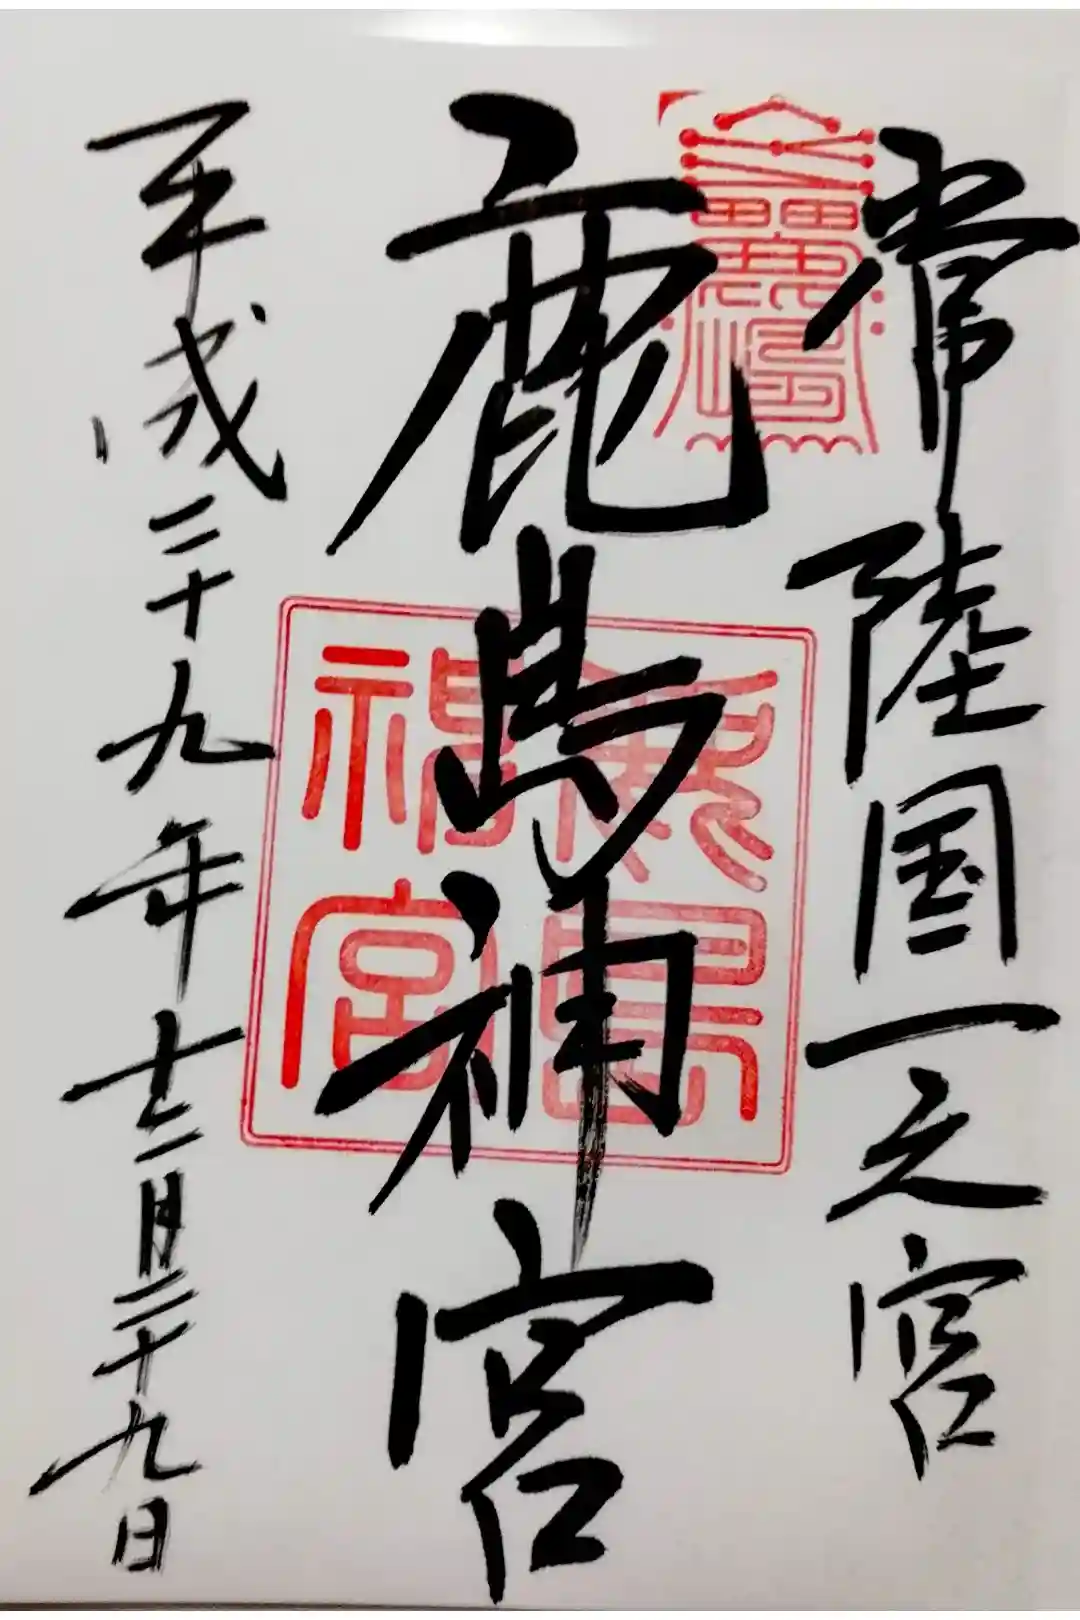 常陸国一之宮
鹿島神宮
平成二十九年十二月二十九日
鹿島
神宮